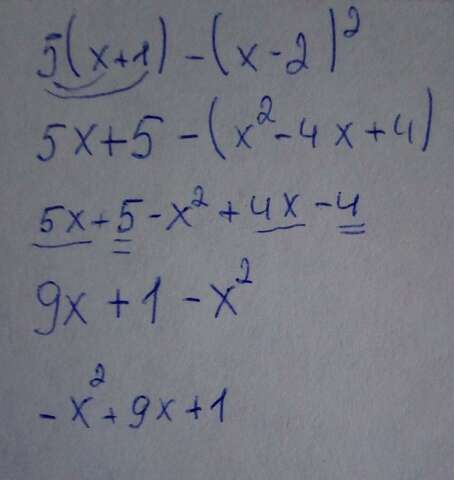 5(x+1)-(x-2)²
5x+5-(x²-4x+4)
5x+5-x²+4x-4
9x+1-x²
-x²+9x+1